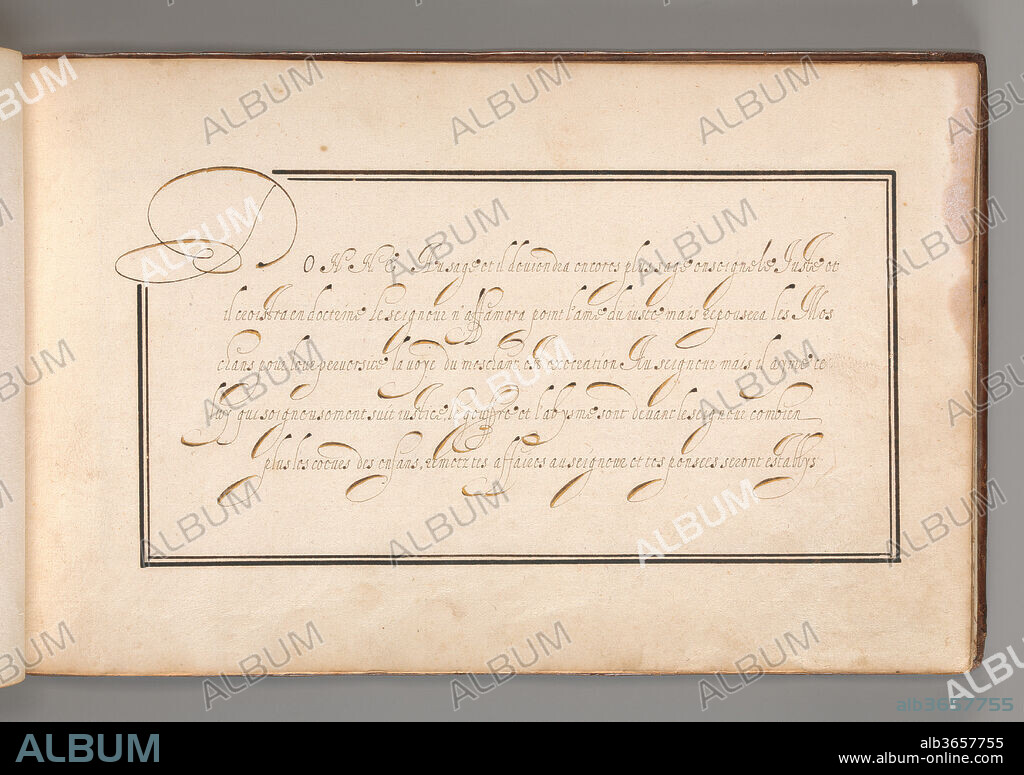 DONNE Au sage et il deuiendra encores plus sage enseigne le Juste et
il croistra en doctrine le seigneur n'affamera point l'ame du iuste mais repousera les Mes
chans pour leur peruersité la uoye du meschant, est execration Au seigneur mais il ayme ce
luy qui soigneusement suit iustice, le gouffre et l'abysme sont deuant le seigneur combien
plus les coeurs des enfans, remetz tes affaires au seigneur et tes pensees seront establys
ALBUM
alb3657755
ALBUM
alb3657755
www.album-online.com